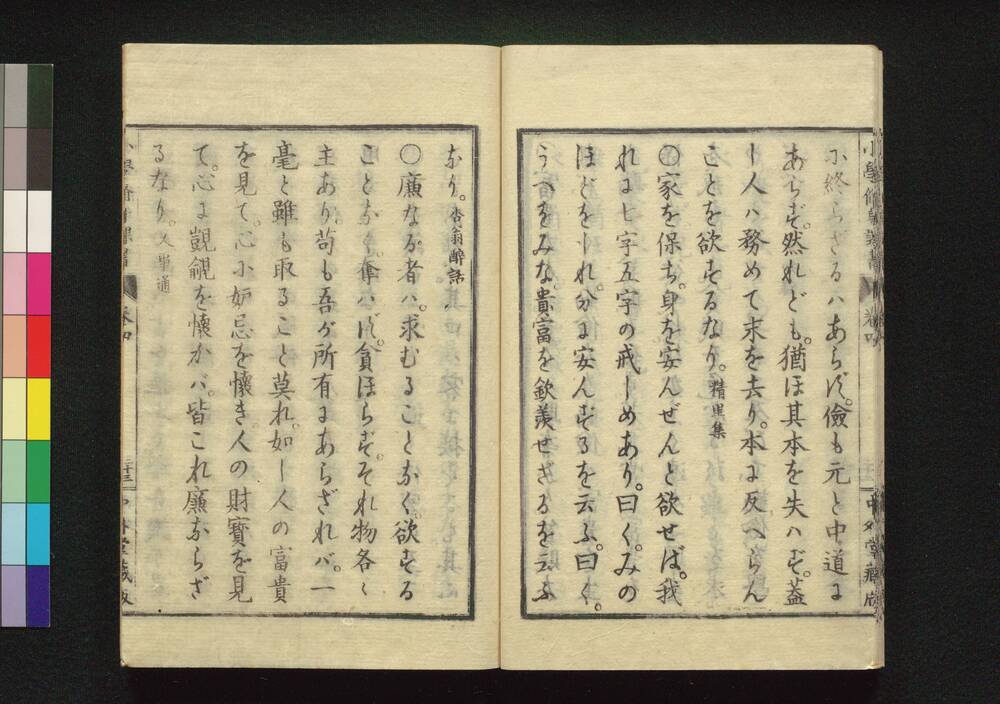 に終らざるハあらず。儉も元と中道に
あらず。然れども。猶ほ其本を失ハず。蓋
し人ハ務めて末を去り。本に反へらん
ことを欲するなり。精里集
〇家を保ち。身を安んぜんと欲せば。我
れに七字五字の戒しめあり。曰く。みの
ほどをしれ。分に安んずるを云ふ。曰く。
うへをみな。貴富を欽羨せざるを云ふ
なり。杏翁醉話
〇廉なる者ハ。求むることなく。欲する
ことなく。奪ハず。貪ほらず。それ物各〻
主あり。苟も吾が所有にあらざれバ。一
毫と雖も取ること莫れ。如し人の富貴
を見て。心に妒忌を懷き。人の財寶を見
て。心に覬覦を懷かバ。皆これ廉ならざ
るなり。
小學修身訓蒙
卷四
中外堂藏版
卷四
二十三
中外堂藏版